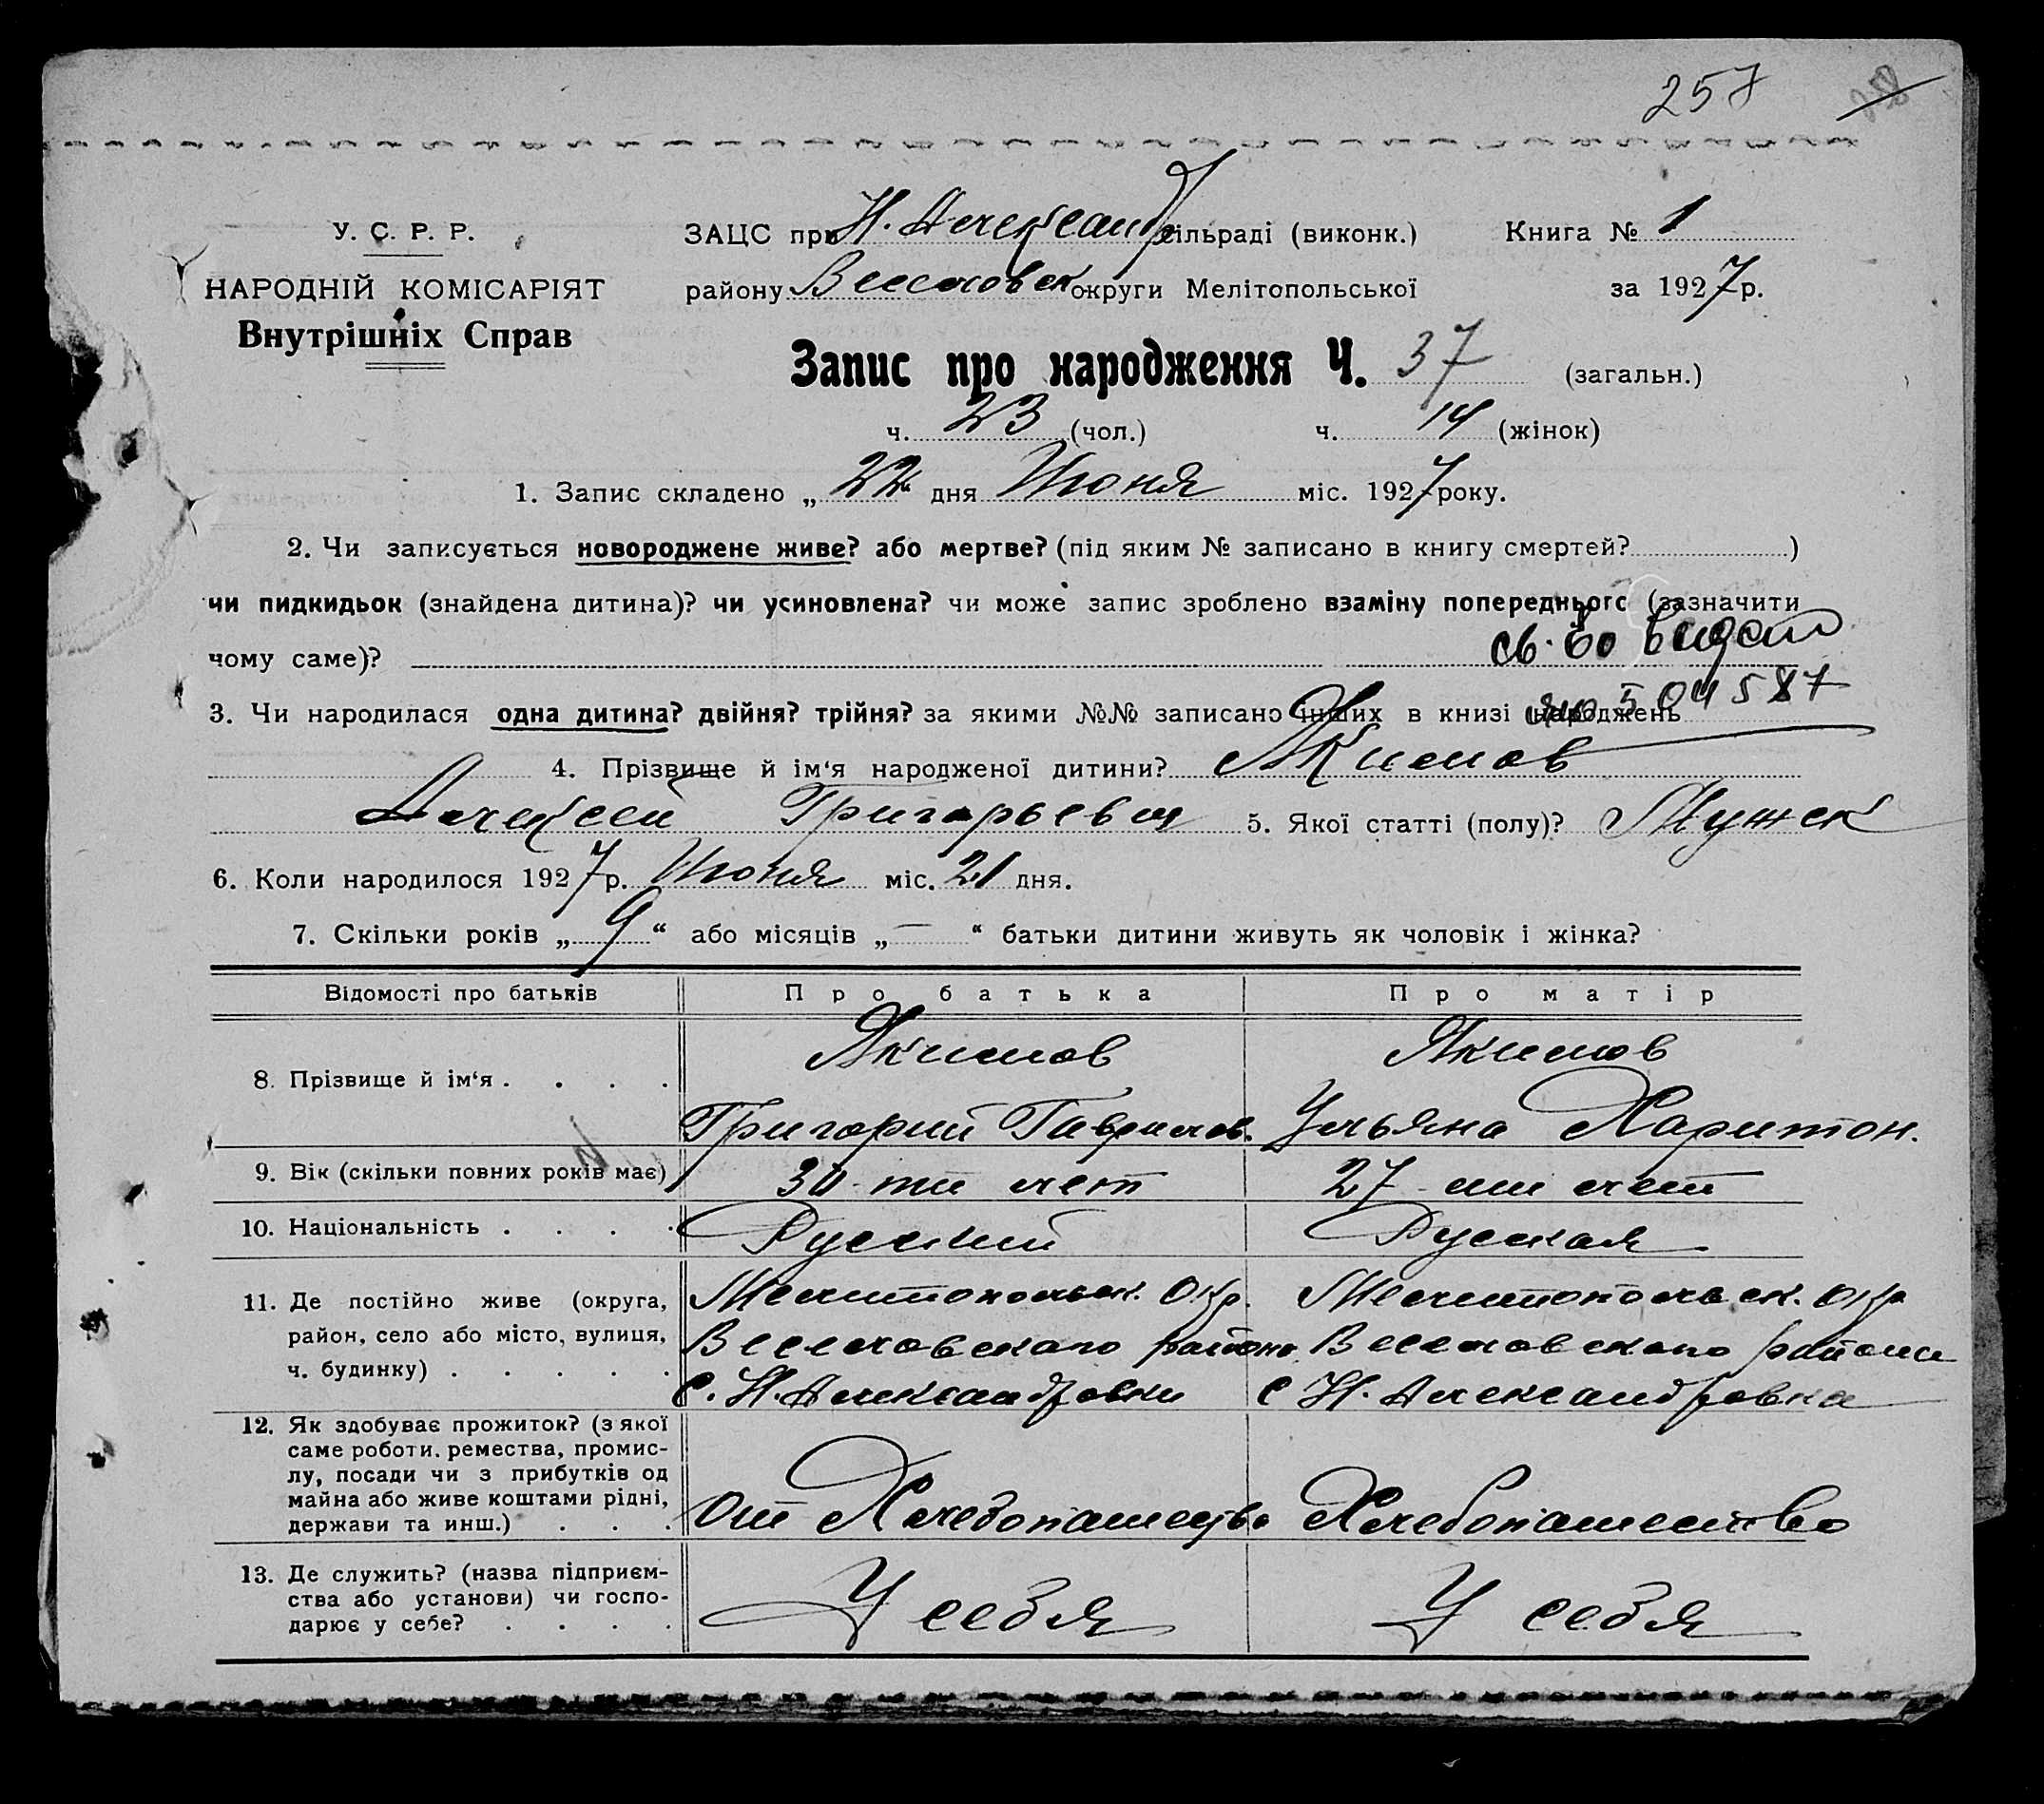 257
У. С. Р. Р.
НАРОДНІЙ КОМІСАРІЯТ
Внутрішніх Справ
ЗАЦС при Н. Александр сільраді (виконк.) Книга № 1
району Веселовск округи Мелітопольської за 1927 р.
Запис про народження Ч. 37 (загальн.)
ч. 23 (чол.) ч. 14 (жінок)
1. Запис складено „22“ дня Июня міс. 1927 року.
2. Чи записується новороджене живе? або мертве? (під яким № записано в книгу смертей? )
чи пидкидьок (знайдена дитина)? чи усиновлена? чи може запис зроблено взаміну попереднього (зазначити
чому саме)? св-во видан
3. Чи народилася одна дитина? двійня? трійня? за якими №№ записано інших в книзі народжень 504587
4. Прізвище й ім‘я народженої дитини? Акимов
Алексей Григорьевич 5. Якої статті (полу)? Мужск
6. Коли народилося 1927 р. Июня міс. 21 дня.
7. Скільки років „9“ або місяців „—“ батьки дитини живуть як чоловік і жінка?
Відомості про батьків Про батька Про матір
8. Прізвище й ім‘я . . . . Акимов Акимов
Григорий Гаврилов. Ульяна Харитон.
9. Вік (скільки повних років має) 30-ти лет 27-ми лет
10. Національність . . . . Русский Русская
11. Де постійно живе (округа, Мелитопольск. Окр. Мелитопольск. окр
район, село або місто, вулиця, Веселовского района Веселовского района
ч. будинку) . . . . . с. Н. Александровки с Н. Александровка
12. Як здобуває прожиток? (з якої
саме роботи. ремества, промис-
лу, посади чи з прибутків од
майна або живе коштами рідні,
держави та инш.) . . . от Хлебопашество Хлебопашество
13. Де служить? (назва підприєм-
ства або установи) чи госпо-
дарює у себе? . . . . У себя У себя